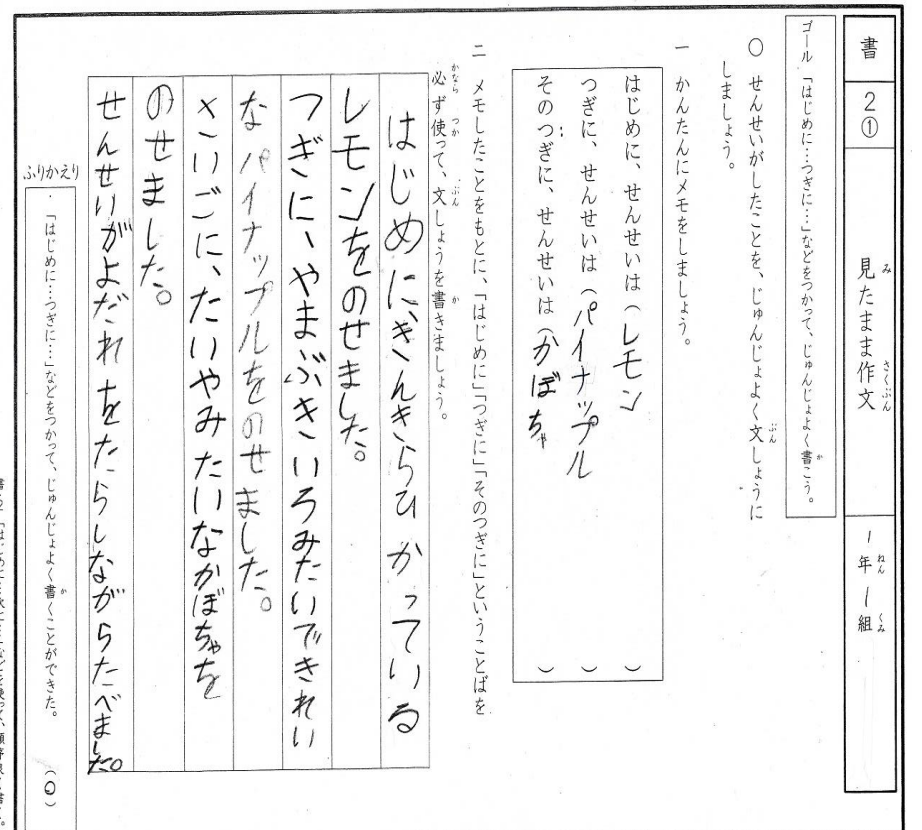 書
2①
見たまま作文
みさくぶん
1年1組
ねんくみ
ゴール 「はじめに…つぎに…」などをつかって、じゅんじょよく書こう。
か
○ せんせいがしたことを、じゅんじょよく文しょうに
ぶん
しましょう。
一 かんたんにメモをしましょう。
はじめに、せんせいは（レモン）
つぎに、せんせいは（パイナップル）
そのつぎに、せんせいは（かぼちゃ）
二 メモしたことをもとに、「はじめに」「つぎに」「そのつぎに」ということばを
必ず使って、文しょうを書きましょう。
かならつかぶんか
はじめに、きんきらひかっている
レモンをのせました。
つぎに、やまぶきいろみたいできれい
なパイナップルをのせました。
さいごに、たいやみたいなかぼちゃを
のせました。
せんせいがよだれをたらしながらたべました。
ふりかえり
・「はじめに…つぎに…」などをつかって、じゅんじょよく書くことができた。
か
（○）